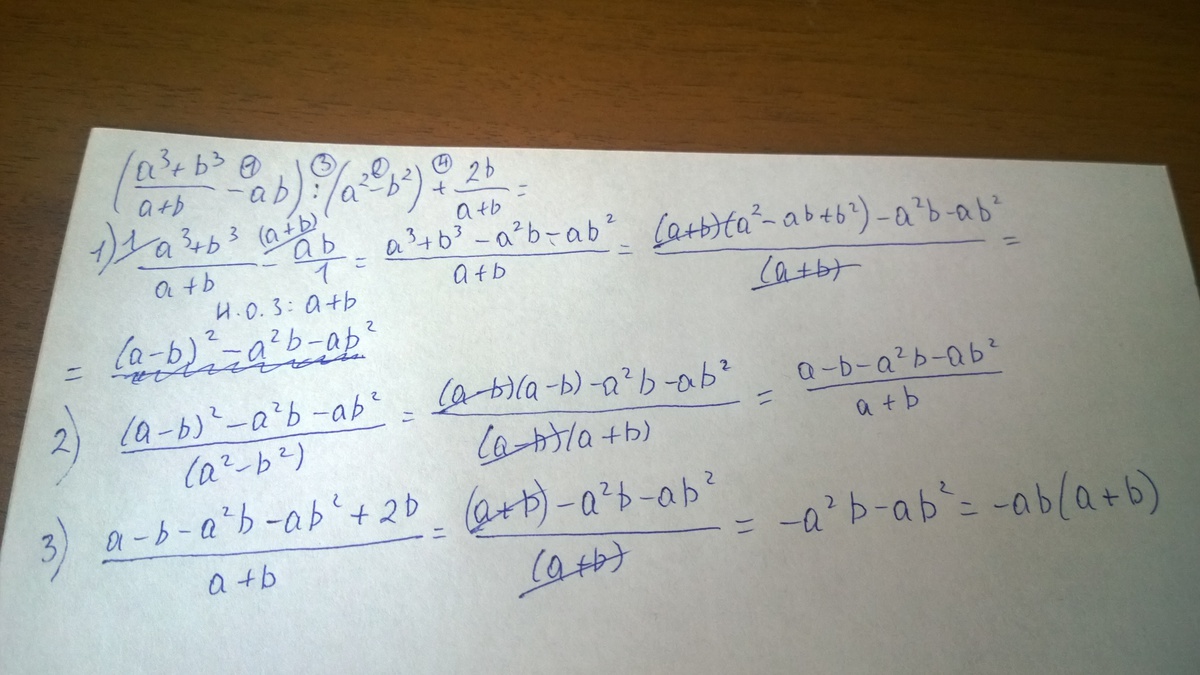 ((a³+b³)/(a+b) ① - ab) ③ : (a² ② - b²) ④ + 2b/(a+b) =
1) 1/ (a³+b³)/(a+b) - (a+b)/ ab/1 = (a³+b³-a²b-ab²)/(a+b) = ((a+b)(a²-ab+b²)-a²b-ab²)/(a+b) =
Н.О.З: a+b
= (a-b)²-a²b-ab²
2) ((a-b)²-a²b-ab²)/(a²-b²) = ((a-b)(a-b)-a²b-ab²)/((a-b)(a+b)) = (a-b-a²b-ab²)/(a+b)
3) (a-b-a²b-ab²+2b)/(a+b) = ((a+b)-a²b-ab²)/(a+b) = -a²b-ab² = -ab(a+b)